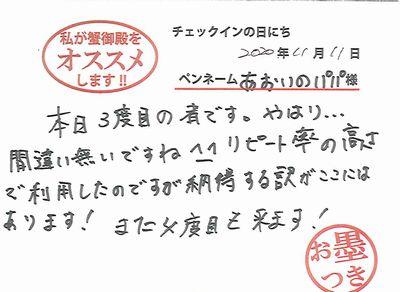 私が蟹御殿を
オススメ
します!!
チェックインの日にち
2020年11月11日
ペンネーム あおいのパパ様
本日3度目の者です。やはり...
間違い無いですね^^リピート率の高さ
で利用したのですが納得する訳がここには
あります！また4度目も来ます！
お墨
つき